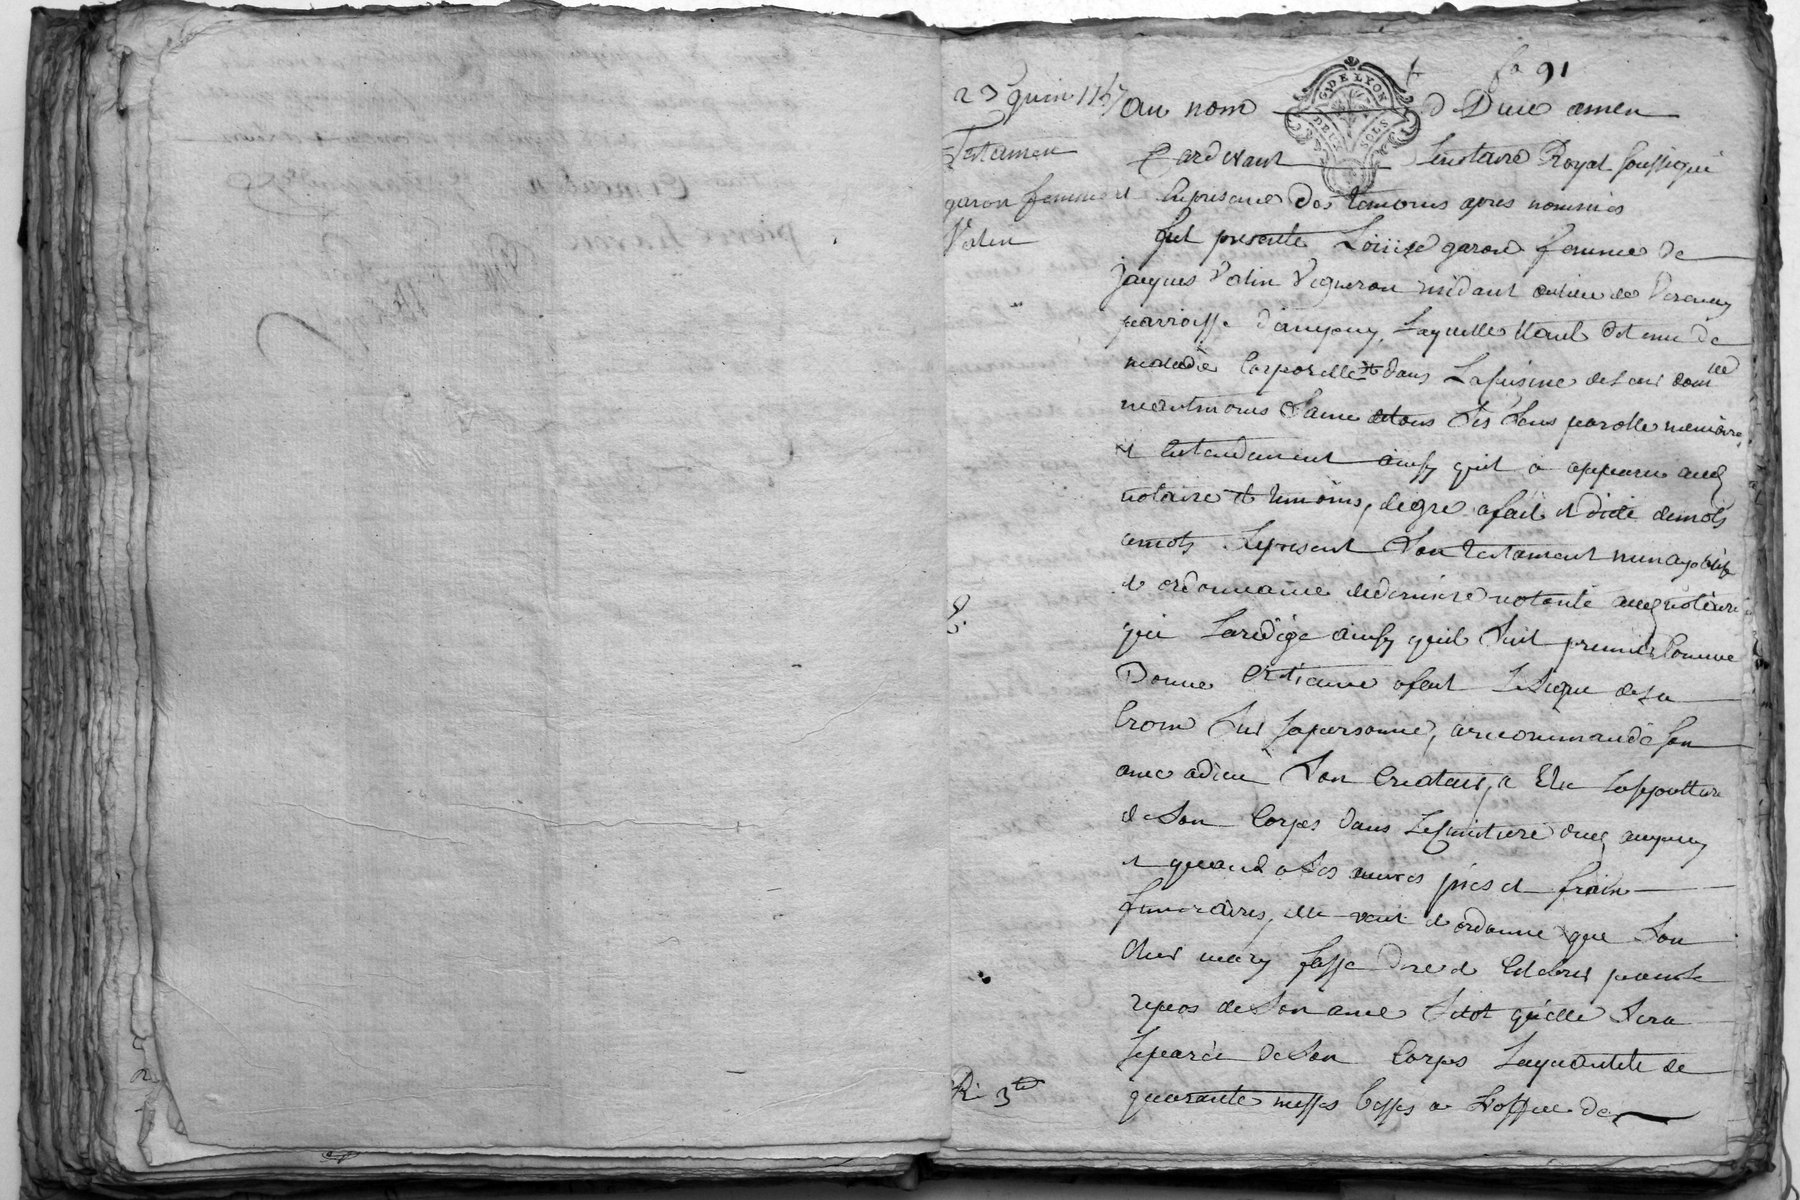 fo 91
23 juin 1767
Testamen
garon femme
Valin
G. DE LYON
DEUX SOLS
Au nom de Dieu amen
Pardevant Le notaire Royal soussigné
En presence des temoins apres nommés
fut presente Loüize garon femme de
jacques Valin Vigneron residant au lieu de
parroisse d'ampuy, Laquelle étant detenue de
maladie Corporelle et dans La cuisine de leur domlle
neantmoins saine de tous ses sens parolle memoire
et Entendement ainsy quil a apparu aud
notaire et temoins, de gré a fait et dicté de mots
a mots Le present son testament nuncupatif
et ordonnance de derniere volonté aud notaire
qui La redigé ainsy quil suit premier Comme
Bonne Crétienne a fait Le signe de la
Croix sur sa personne, a recommandé son
ame a dieu son Createur, a Elu La sepulture
de son Corps dans Le Cimitiere dud ampuy
et quand a ses œuvres pies et frais
funeraires, elle veut et ordonne que son
cher mary fasse dire et Celebrer pour le
repos de son ame sitot qu'elle sera
separée de son Corps La quantité de
quarante messes basses a L'office des
R. 3tt